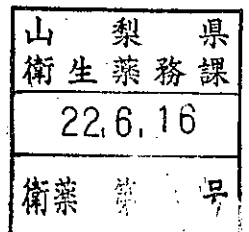 山梨県
衛生薬務課
22.6.16
衛薬 第 号